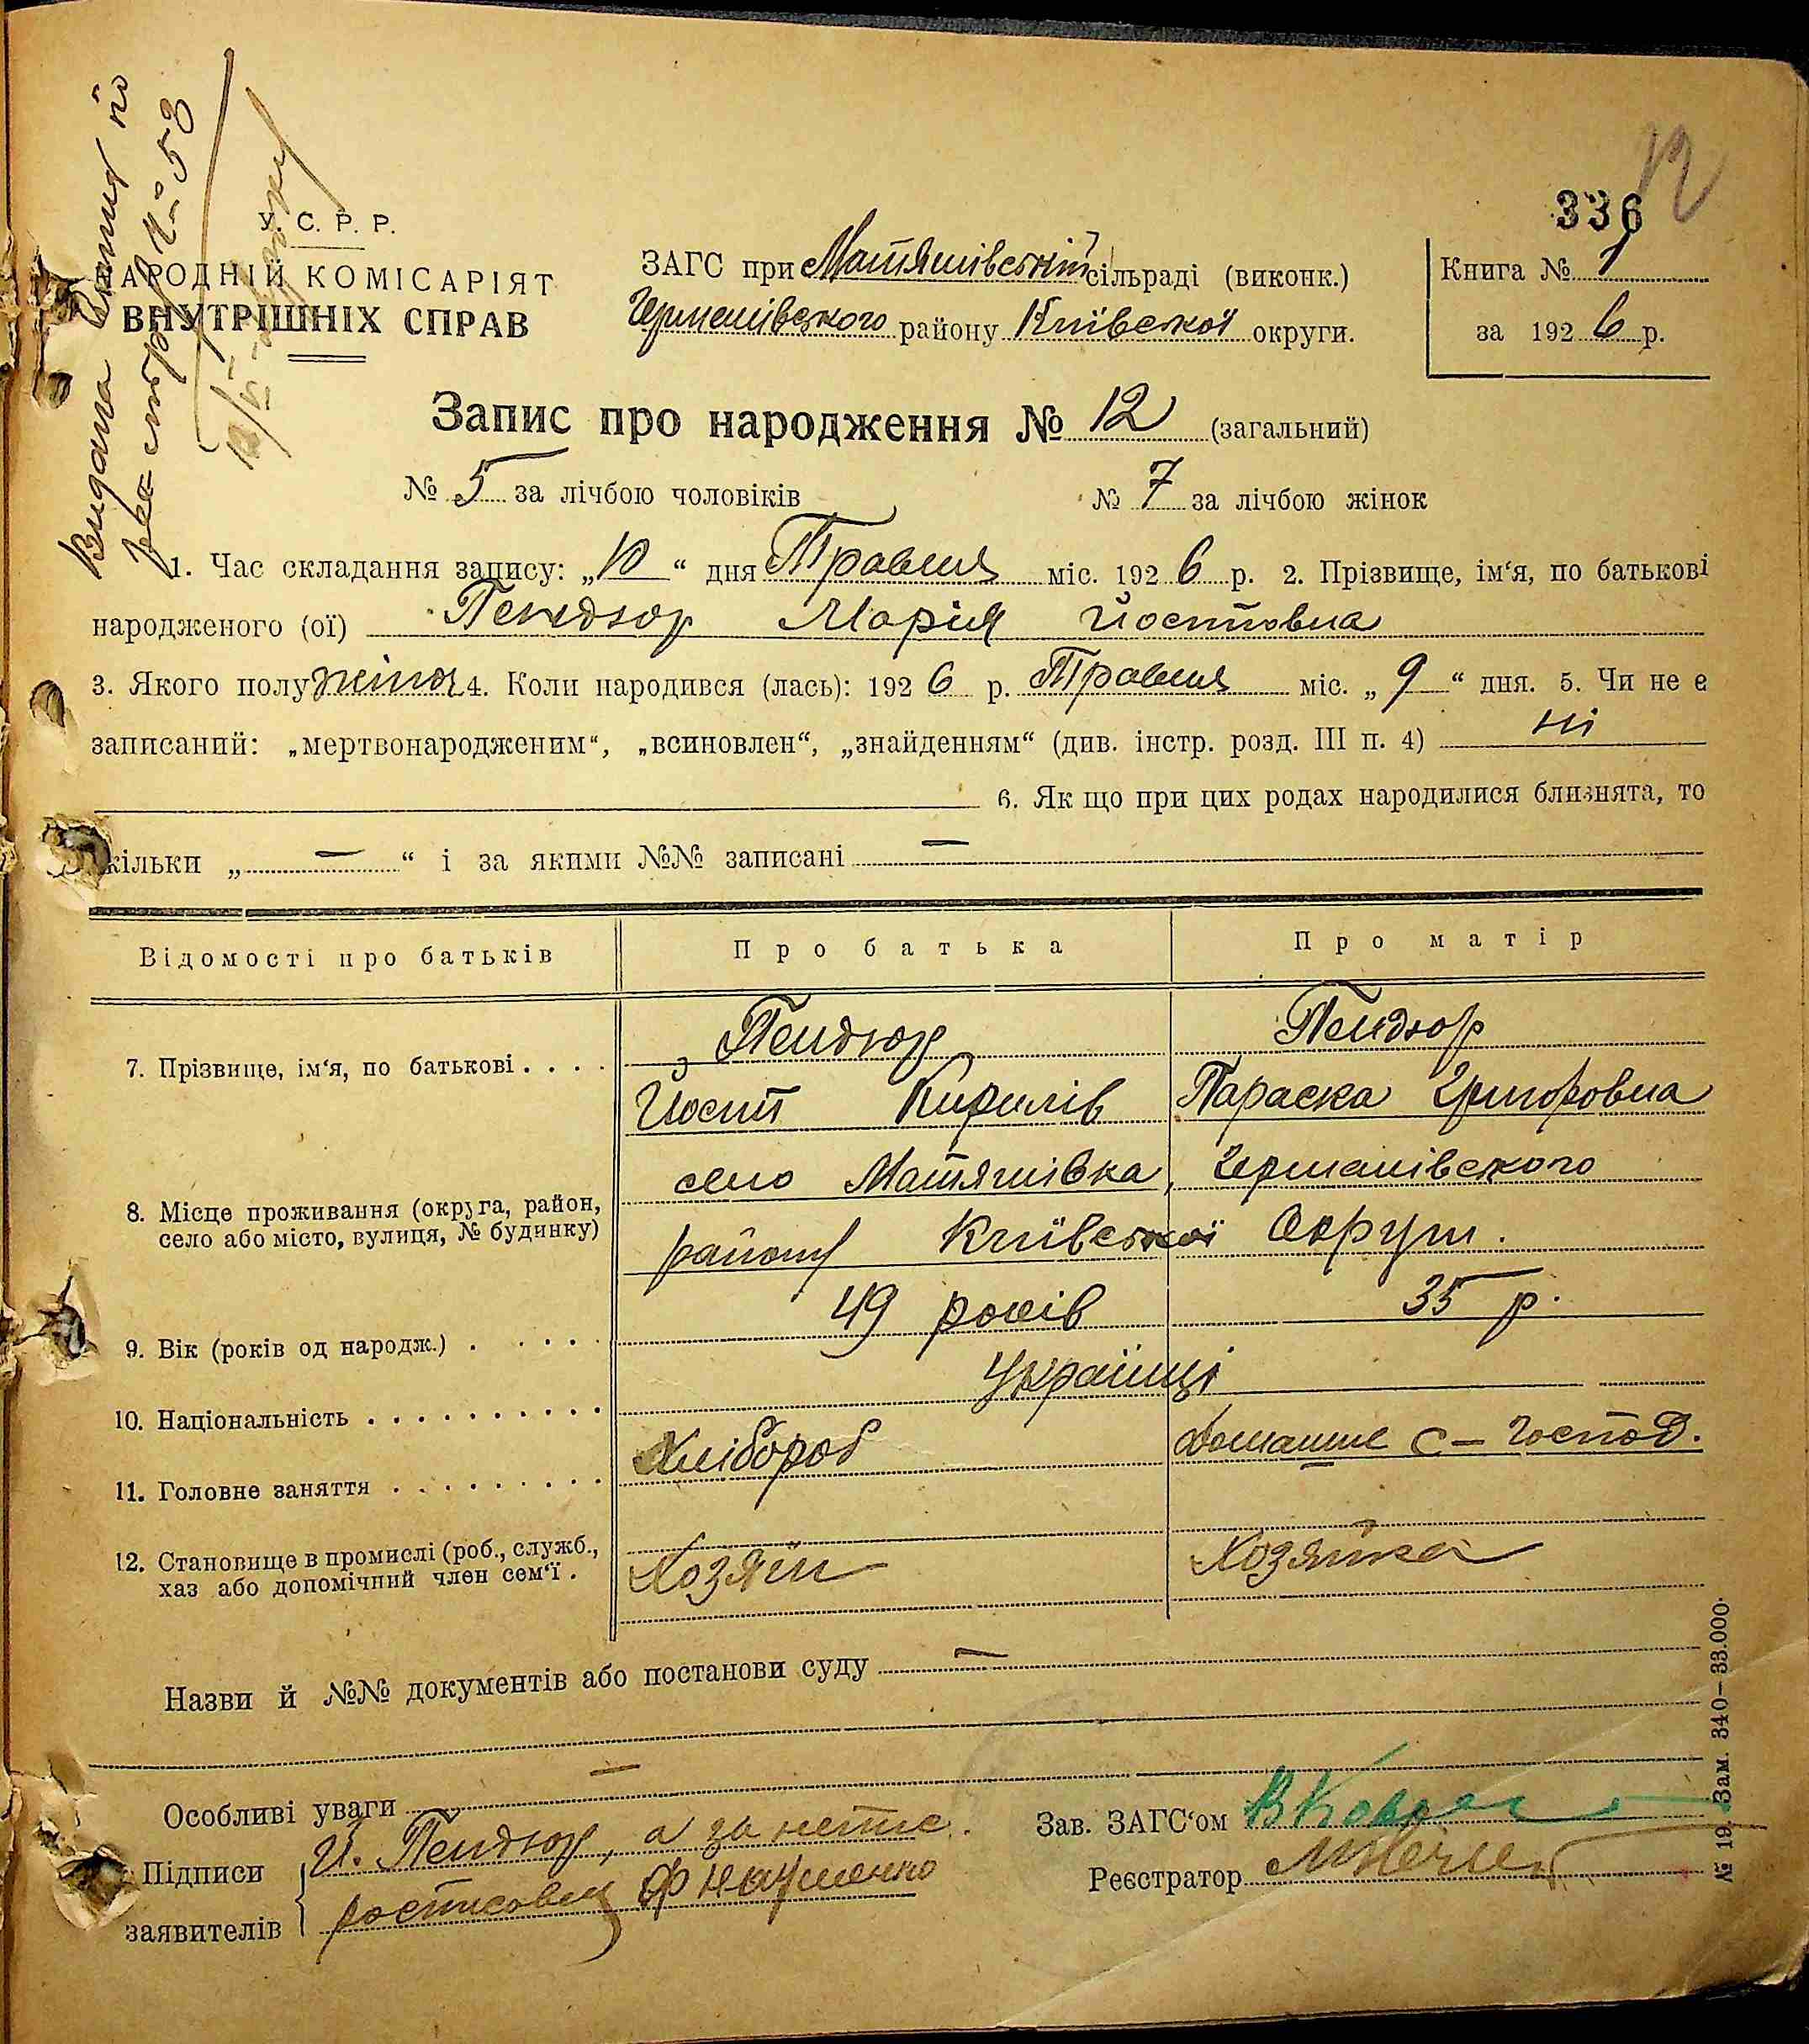 12
336
У. С. Р. Р.
НАРОДНІЙ КОМІСАРІЯТ
ВНУТРІШНІХ СПРАВ
ЗАГС при Матяшівській сільраді (виконк.)
Германівского району Київської округи.
Книга № 1
за 1926 р.
Видана
Запис про народження № 12 (загальний)
№ 5 за лічбою чоловіків № 7 за лічбою жінок
1. Час складання запису: „10“ дня Травня міс. 1926 р. 2. Прізвище, ім‘я, по батькові
народженого (ої) Пендзюр Марія Йостовна
3. Якого полу жіноч 4. Коли народився (лась): 1926 р. Травня міс. „9“ дня. 5. Чи не є
записаний: „мертвонародженим“, „всиновлен“, „знайденням“ (див. інстр. розд. III п. 4) ні
6. Як що при цих родах народилися близнята, то
кільки „ — “ і за якими №№ записані —
Відомості про батьків Про батька Про матір
7. Прізвище, ім‘я, по батькові . . . . Пендзюр Пендзюр
Йост Кирилів Параска Григоровна
8. Місце проживання (округа, район, село Матяшівка, Германівского
село або місто, вулиця, № будинку) району Київської Округи.
9. Вік (років од народж.) . . . . . 49 років 35 р.
10. Національність . . . . . . . . . . Українці
11. Головне заняття . . . . . . . . . Хлібороб Домашне с-господ.
12. Становище в промислі (роб., служб., Хозяїн Хозяйка
хаз або допомічний член сем‘ї .
Назви й №№ документів або постанови суду —
—
Особливі уваги
Підписи заявителів Й. Пендзюр, а за непис.
росписовся Ф Науменко
Зав. ЗАГС‘ом
Реєстратор
№ 19. Зам. 340–33.000.